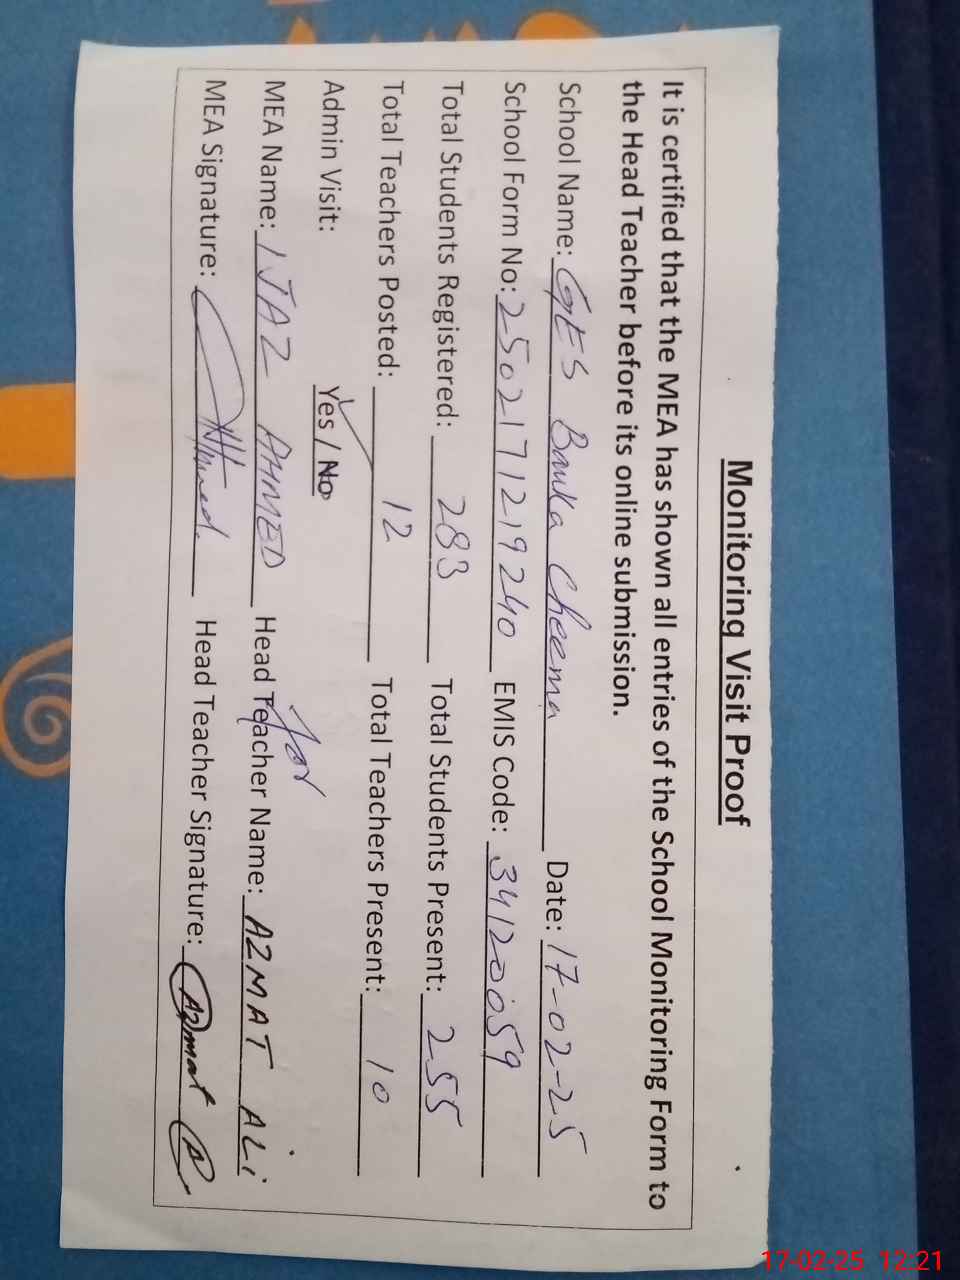 Monitoring Visit Proof
It is certified that the MEA has shown all entries of the School Monitoring Form to
the Head Teacher before its online submission.
School Name: GES Banka Cheema Date: 17-02-25
School Form No: 2502171219240 EMIS Code: 34120059
Total Students Registered: 283 Total Students Present: 255
Total Teachers Posted: 12 Total Teachers Present: 10
Admin Visit: Yes / No
for
MEA Name: IJAZ AHMED Head Teacher Name: AZMAT ALi
MEA Signature: Ahmed Head Teacher Signature: Azmat
17-02-25 12:21